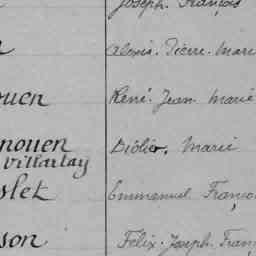 Joseph. François
Alexis. Pierre. Mari
ouen René. Jean. Marie
nouen Didier. Marie
Villartay
slet Emmanuel Franço
son Félix. Joseph. Fran